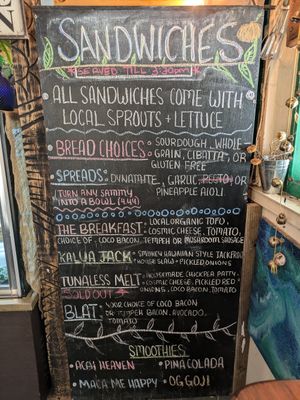 SANDWICHES
*SERVED TILL 3:30pm*
ALL SANDWICHES COME WITH
LOCAL SPROUTS + LETTUCE
BREAD CHOICES: SOURDOUGH, WHOLE
GRAIN, CIBATTA, OR
GLUTEN FREE
SPREADS: DYNAMITE, GARLIC PESTO OR
PINEAPPLE AIOLI
TURN ANY SAMMY
INTO A BOWL (4.44)
THE BREAKFAST: LOCAL ORGANIC TOFU,
COSMIC CHEESE, TOMATO,
CHOICE OF: COCO BACON, TEMPEH OR MUSHROOM SAUSAGE
KALUA JACK: SMOKEY HAWAIIAN STYLE JACKFRUIT
HOUSE SLAW + PICKLED ONIONS
TUNALESS MELT: HOUSEMADE CHICKPEA PATTY
COSMIC CHEESE, PICKLED RED
SOLD OUT ONIONS, COCO BACON, TOMATO
BLAT: YOUR CHOICE OF COCO BACON
OR TEMPEH BACON, AVOCADO,
TOMATO
SMOOTHIES
• ACAI HEAVEN • PINA COLADA
• MACA ME HAPPY • OG GOJI